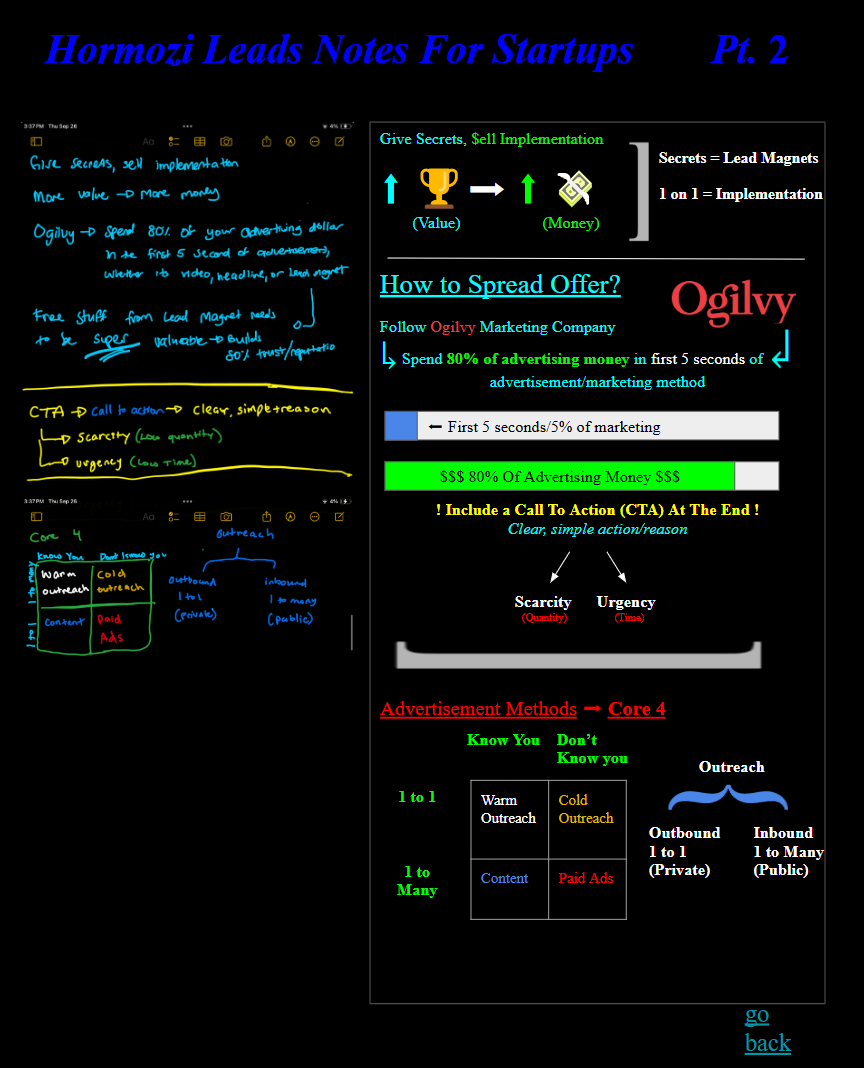 Hormozi Leads Notes For Startups Pt. 2
3:37 PM Thu Sep 26
4%
Aa
Give Secrets, sell implementation
More value → More money
Ogilvy → Spend 80% of your advertising dollar
in the first 5 second of advertisement,
whether its video, headline, or lead magnet
Free Stuff from Lead Magnet needs
to be super valuable → Builds
80% trust/reputatio
CTA → Call to action → Clear, simple + reason
Scarcity (Low quantity)
urgency (Low Time)
3:37 PM Thu Sep 26
4%
Aa
Core 4
Know You Dont know you
1 to many
Warm outreach
Cold outreach
1 to 1
Content
Paid Ads
Outreach
outbound
1 to 1
(private)
inbound
1 to many
(public)
Give Secrets, $ell Implementation
(Value) (Money)
Secrets = Lead Magnets
1 on 1 = Implementation
How to Spread Offer?
Ogilvy
Follow Ogilvy Marketing Company
Spend 80% of advertising money in first 5 seconds of
advertisement/marketing method
First 5 seconds/5% of marketing
$$$ 80% Of Advertising Money $$$
! Include a Call To Action (CTA) At The End !
Clear, simple action/reason
Scarcity Urgency
(Quantity) (Time)
Advertisement Methods → Core 4
Know You Don't
Know you
1 to 1
Warm
Outreach
Cold
Outreach
1 to
Many
Content
Paid Ads
Outreach
Outbound
1 to 1
(Private)
Inbound
1 to Many
(Public)
go
back